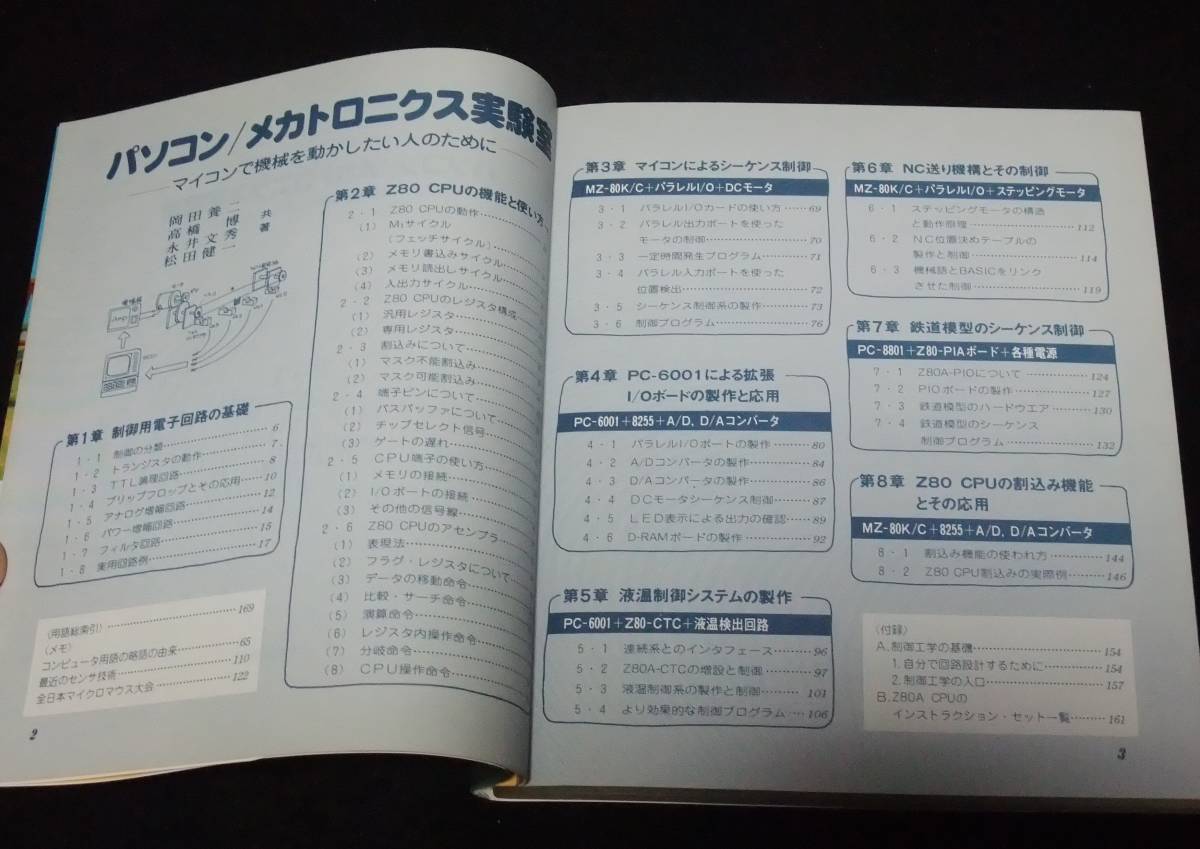 パソコン/メカトロニクス実験室
マイコンで機械を動かしたい人のために
岡田養二
高橋 博
永井文秀
松田健一
共著
第1章 制御用電子回路の基礎
1・1 制御の分類 6
1・2 トランジスタの動作 7
1・3 TTL論理回路 8
1・4 フリップフロップとその応用 10
1・5 アナログ増幅回路 12
1・6 パワー増幅回路 14
1・7 フィルタ回路 15
1・8 実用回路例 17
〈用語総索引〉 169
〈メモ〉
コンピュータ用語の略語の由来 65
最近のセンサ技術 110
全日本マイクロマウス大会 122
2
第2章 Z80 CPUの機能と使い方
2・1 Z80 CPUの動作
(1) M₁サイクル
(フェッチサイクル)
(2) メモリ書込みサイクル
(3) メモリ読出しサイクル
(4) 入出力サイクル
2・2 Z80 CPUのレジスタ構成
(1) 汎用レジスタ
(2) 専用レジスタ
2・3 割込みについて
(1) マスク不能割込み
(2) マスク可能割込み
2・4 端子ピンについて
(1) バスバッファについて
(2) チップセレクト信号
(3) ゲートの遅れ
2・5 CPU端子の使い方
(1) メモリの接続
(2) I/Oポートの接続
(3) その他の信号線
2・6 Z80 CPUのアセンブラ
(1) 表現法
(2) フラグ・レジスタについて
(3) データの移動命令
(4) 比較・サーチ命令
(5) 演算命令
(6) レジスタ内操作命令
(7) 分岐命令
(8) CPU操作命令
第3章 マイコンによるシーケンス制御
MZ-80K/C+パラレルI/O+DCモータ
3・1 パラレルI/Oカードの使い方 69
3・2 パラレル出力ポートを使った
モータの制御 70
3・3 一定時間発生プログラム 71
3・4 パラレル入力ポートを使った
位置検出 72
3・5 シーケンス制御系の製作 73
3・6 制御プログラム 76
第4章 PC-6001による拡張
I/Oボードの製作と応用
PC-6001+8255+A/D, D/Aコンバータ
4・1 パラレルI/Oポートの製作 80
4・2 A/Dコンバータの製作 84
4・3 D/Aコンバータの製作 86
4・4 DCモータシーケンス制御 87
4・5 LED表示による出力の確認 89
4・6 D-RAMボードの製作 92
第5章 液温制御システムの製作
PC-6001+Z80-CTC+液温検出回路
5・1 連続系とのインタフェース 96
5・2 Z80A-CTCの増設と制御 97
5・3 液温制御系の製作と制御 101
5・4 より効果的な制御プログラム 106
第6章 NC送り機構とその制御
MZ-80K/C+パラレルI/O+ステッピングモータ
6・1 ステッピングモータの構造
と動作原理 112
6・2 NC位置決めテーブルの
製作と制御 114
6・3 機械語とBASICをリンク
させた制御 119
第7章 鉄道模型のシーケンス制御
PC-8801+Z80-PIAボード+各種電源
7・1 Z80A-PIOについて 124
7・2 PIOボードの製作 127
7・3 鉄道模型のハードウエア 130
7・4 鉄道模型のシーケンス
制御プログラム 132
第8章 Z80 CPUの割込み機能
とその応用
MZ-80K/C+8255+A/D, D/Aコンバータ
8・1 割込み機能の使われ方 144
8・2 Z80 CPU割込みの実際例 146
〈付録〉
A.制御工学の基礎 154
1.自分で回路設計するために 154
2.制御工学の入口 157
B.Z80A CPUの
インストラクション・セット一覧 161
3